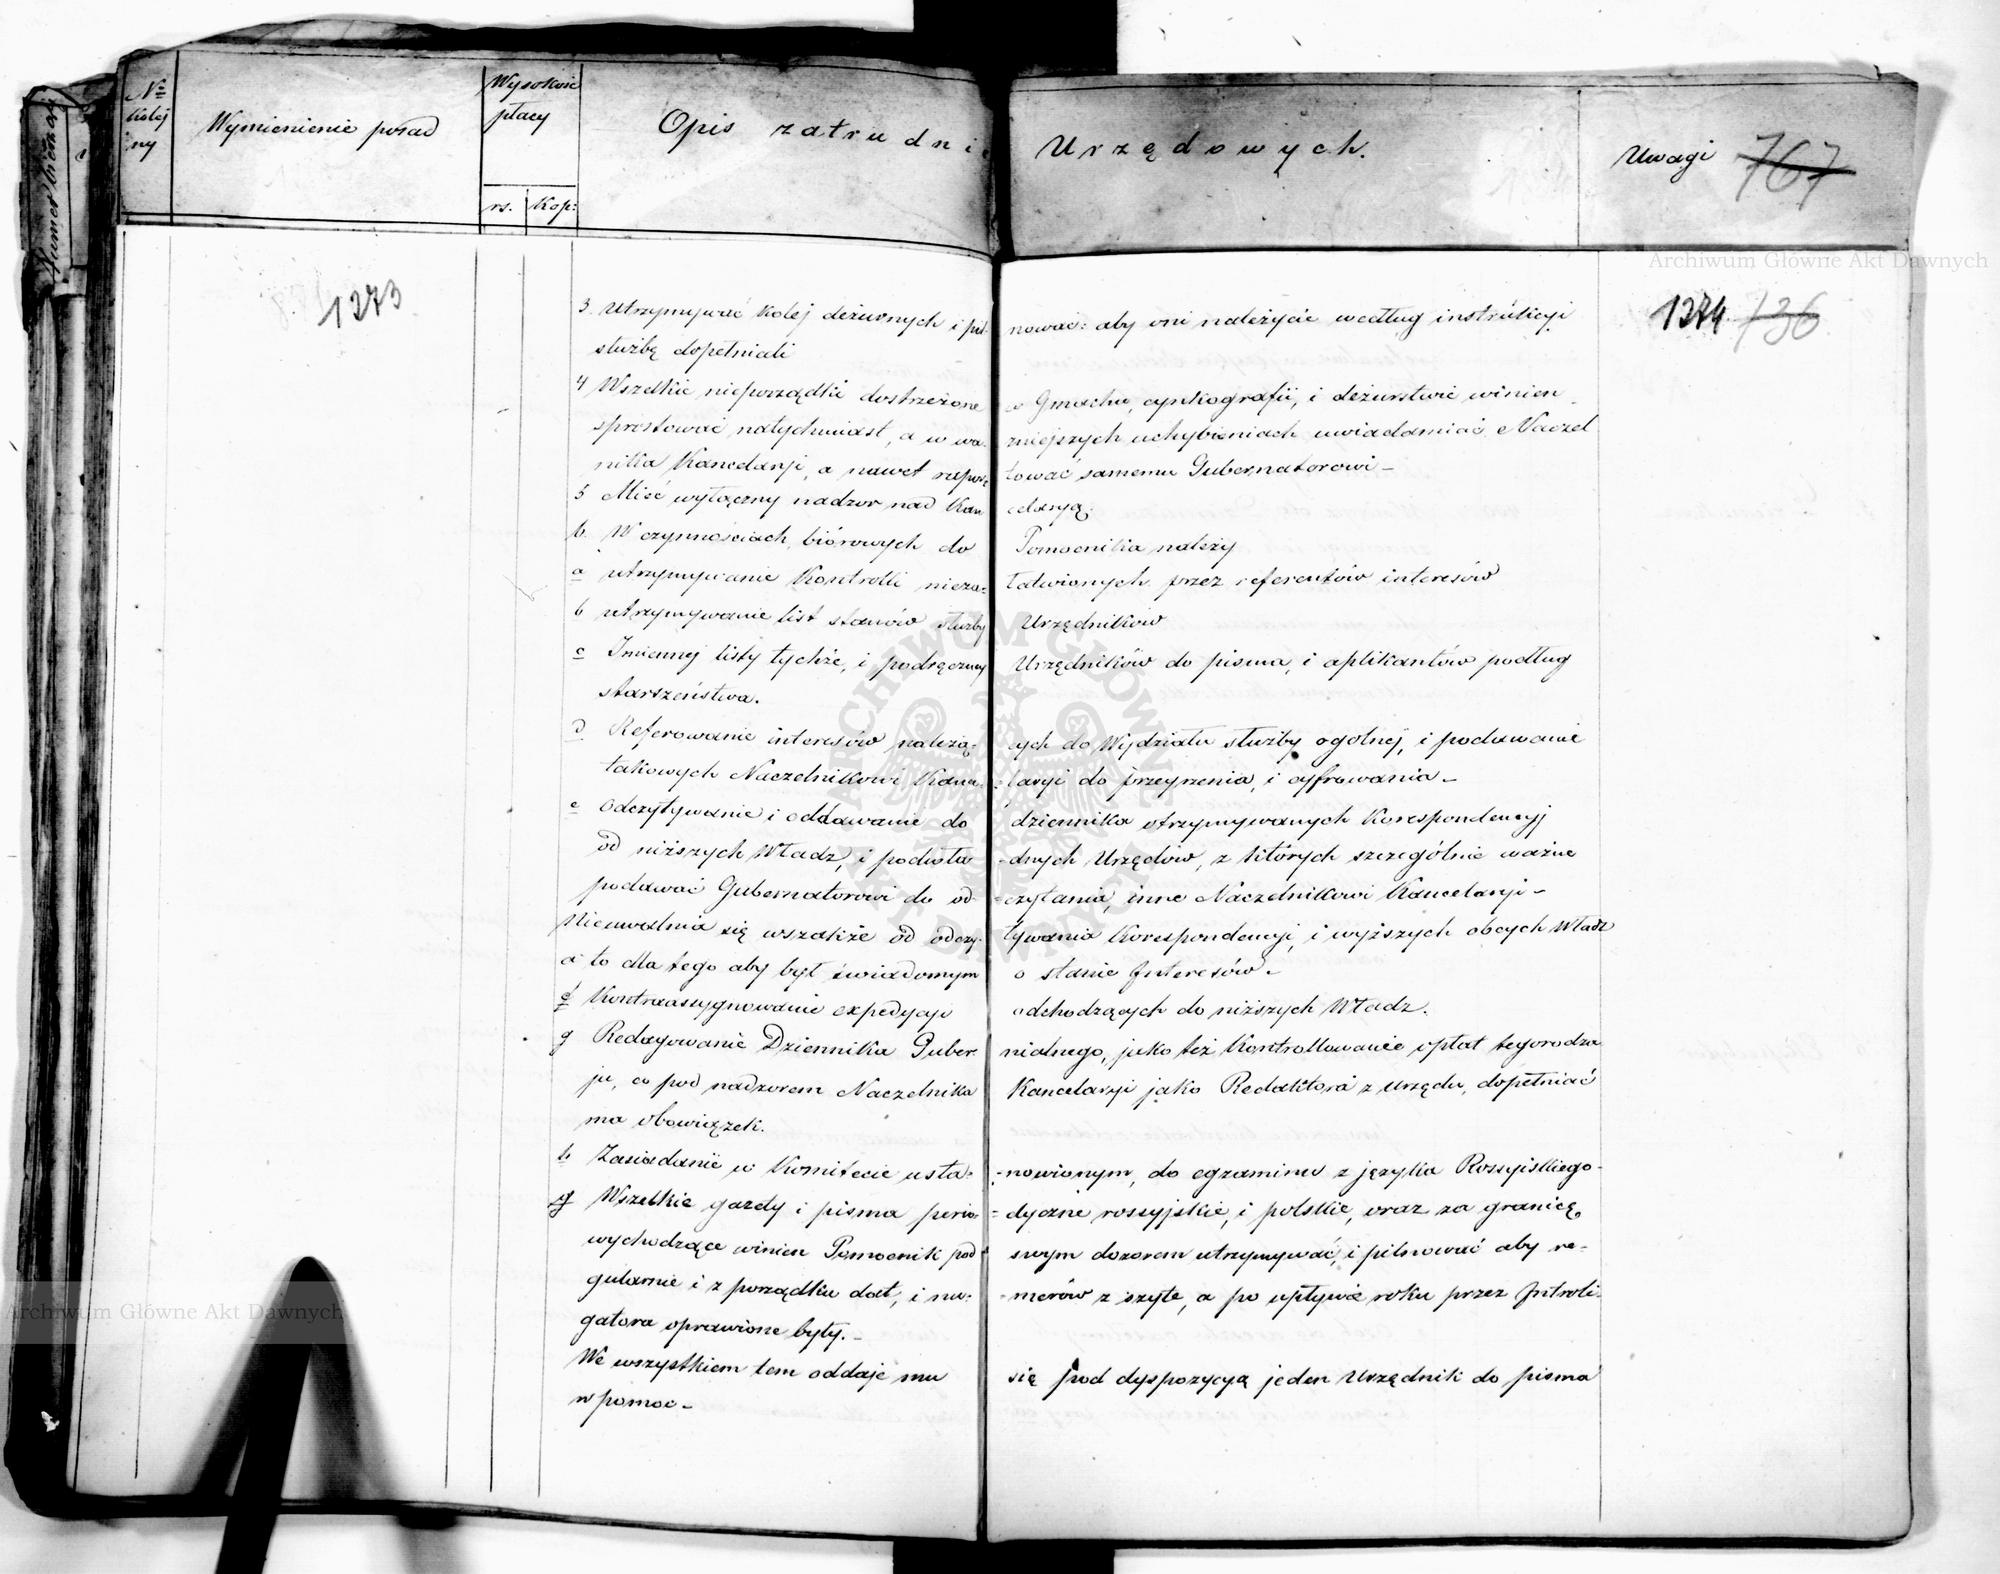 No Kolejny
Wymienienie posad
Wysokość płacy
rs. Kop:
Opis zatrudnień Urzędowych.
Uwagi 767
1273
1274 736
3. Utrzymywać kolej dezurnych i pilnować: aby oni należycie według instrukcji
służbę dopełniali
4 Wszelkie nieporządki dostrzeżone w Gmachu, cynkografii, i deżurstwie winien
sprostować natychmiast, a w ważniejszych uchybieniach uwiadamiać Naczel
nika Kancelaryi, a nawet raportować samemu Gubernatorowi –
5 Mieć wyłączny nadzor nad Kancelaryą.
b. W czynnościach biórowych do Pomocnika należy
a utrzymywanie Kontrolli niezałatwionych przez referentów interesów
b utrzymywanie list stanów służby Urzędników
c Imiennej listy tychże, i podręcznej Urzędników do pisma, i aplikantów podług
starszeństwa.
d Referowanie interesów należą=cych do Wydziału służby ogolnej, i podawanie
takowych Naczelnikowi Kance=laryi do przejrzenia, i cyfrowania –
e Odczytywanie i oddawanie do dziennika otrzymywanych Korespondencyj
od niższych Władz, i podwładnych Urzędów, z których szczególnie ważne
podawać Gubernatorowi do od=czytania, inne Naczelnikowi Kancelaryi –
Nieuwalnia się wszakże od odczy=tywania Korespondencyi, i wyższych obcych Władz
a to dla tego aby był świadomym o stanie Interesów –
f Kontrassygnowanie expedycyi odchodzących do niższych Władz.
g Redagowanie Dziennika Gubernialnego, jako też Kontrollowanie opłat tegorodza
ju, co pod nadzorem Naczelnika Kancelaryi jako Redaktora z urzędu, dopełniać
ma obowiązek.
h Zasiadanie w Komitecie usta=nowionym, do egzaminu z języka Rossyiskiego –
g Wszelkie gazety i pisma perio=dyczne rossyjskie, i polskie, oraz za granicą
wychodzące winien Pomocnik pod swym dozorem utrzymywać, i pilnować aby re=
gularnie i z porządku dat, i nu=merów z szyte, a po upływie roku przez Introli=
gatora oprawione były. –
We wszystkiem tem oddaje mu się pod dyspozycyą jeden Urzędnik do pisma
w pomoc –
Numer bieżący
Archiwum Główne Akt Dawnych
Archiwum Główne Akt Dawnych
ARCHIWUM GŁÓWNE AKT DAWNYCH